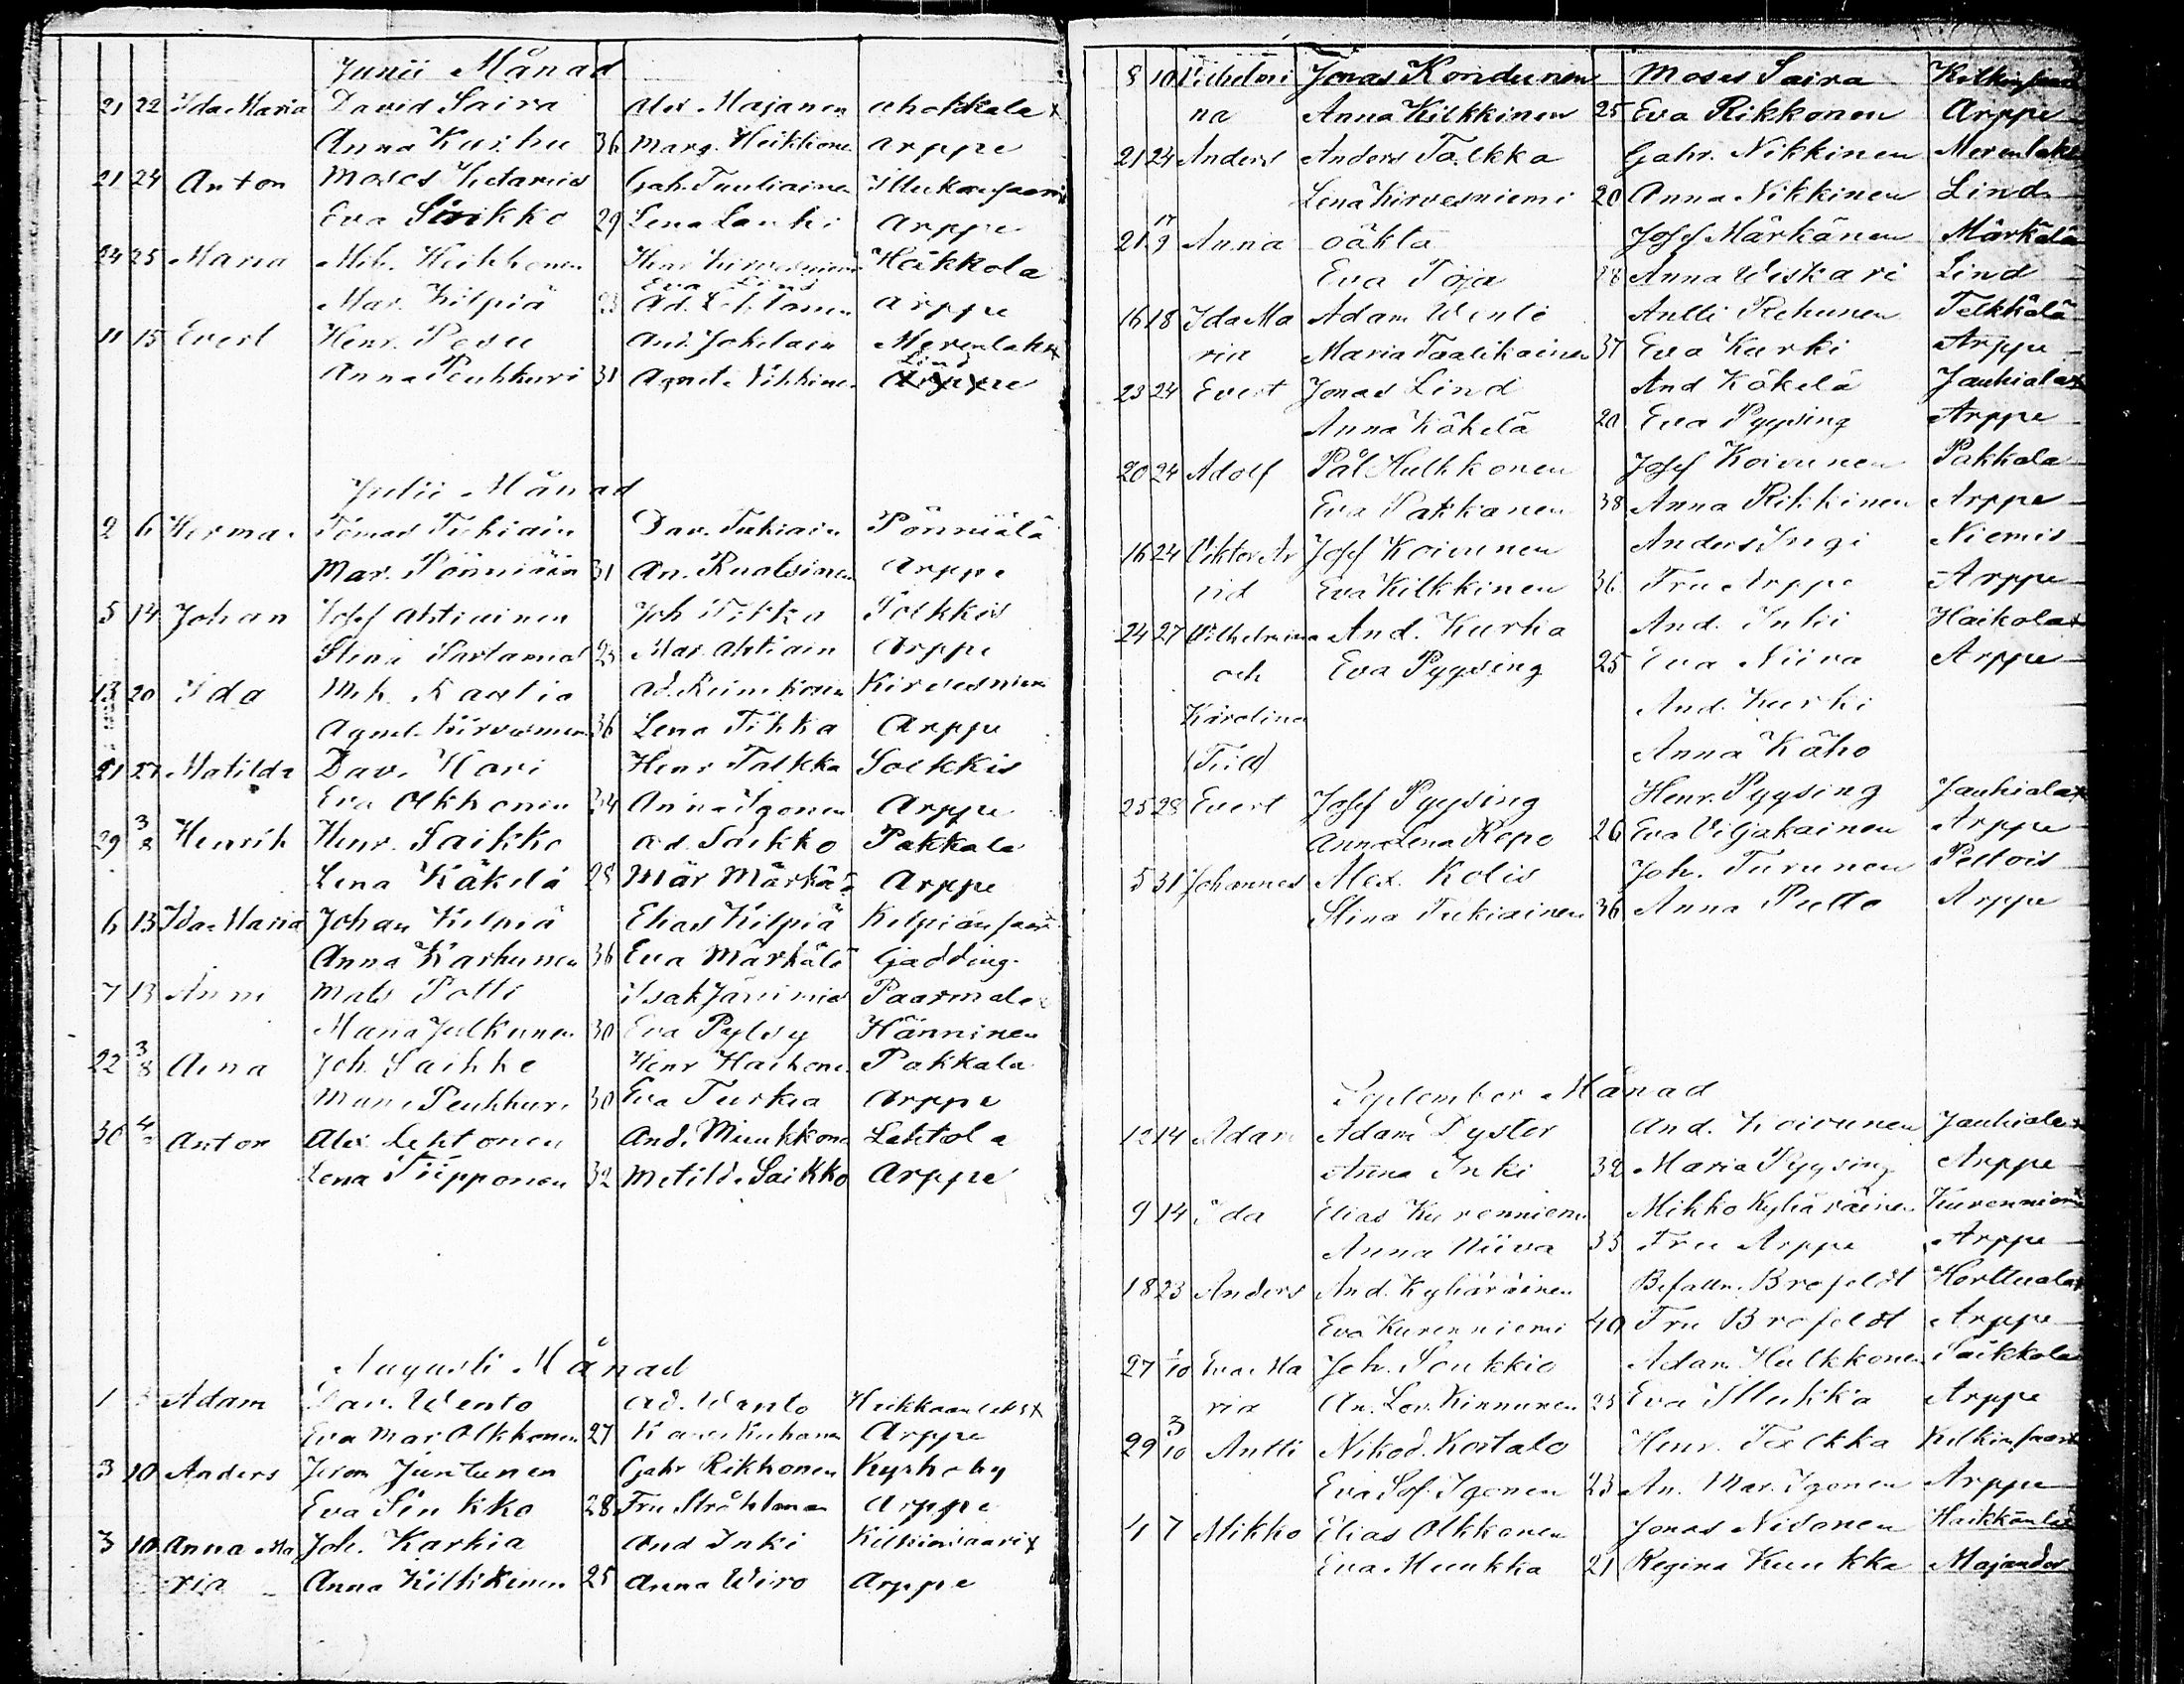 Junii Månad
21 22 Ida Maria David Saira Alex Majanen Ahokkala x
Anna Kurhu 36 Marg. Heikkone Arppe
21 24 Anton Moses Gab. Tuuliainen
Eva Sirkko 29 Lena Lauki Arppe
24 25 Maria Mih. Heikkonen Henr Kirvesniemi Häkkola
Eva Lind
Mar. Kilpiä 23 Ad. Lehtonen Arppe
11 15 Evert Henr. Pesu And. Jokelain Merenlaks x
Lind
Anna Peuhkuri 31 Agneta Nikkinen Arppe
Julii Månad
2 6 Herman Tomas Tukiain Dav. Tukiain Pönniälä
Mar. Pönniäin 31 An. Ruolsinen Arppe
5 14 Johan Josef Ahtiainen Joh Tikka Solkkis
Stina 23 Mar. Ahtiain Arppe
13 20 Ida Mih. Rastio Ad. Kirvesniem
Agnet. Kirvesniem 36 Lena Tikka Arppe
21 27 Matilda Dav. Kari Henr Talkka Solkkis
Eva Olkkonen 24 Anna Igonen Arppe
29 3/8 Henrik Henr. Saikko Ad. Saikko Pakkala
Lena Käkelä 28 Mar Märkä Arppe
6 13 Ida Maria Johan Kilpiä Elias Kilpiä Kilpiänsaari
Anna Karhunen 36 Eva Märkälä Gadding
7 13 Anni Mats Potti Isak Paarmala
Maria Julkunen 30 Eva Pylsy Hänninen
22 3/8 Aina Joh. Saikko Henr Haikone Pakkala
Maria Peuhkuri 30 Eva Turkia Arppe
30 Anton Alex Lehtonen And. Muukkone Lehtola
Lena Tiipponen 32 Metilda Saikko Arppe
Augusti Månad
1 Adam Dav. Wento Ad. Wento
Eva Mar Olkkonen 27 Arppe
3 10 Anders Jerem Juntunen Gabr Rikkonen Kyrkoby
Eva Sinkko 28 Fru Stråhlman Arppe
3 10 Anna Ma Joh. Karhia And Inki Kilkinsaari x
ria Anna Kilkkinen 25 Anna Wiro Arppe
8 10 Vilhelmi Jonas Kondunen Moses Saira Kilkinsaari
na Anna Kilkkinen 25 Eva Rikkonen Arppe
21 24 Anders Anders Talkka Gabr. Nikkinen Merenlaks
Lena Kirvesniemi 20 Anna Nikkinen Lind
21 17/9 Anna oäkta Josef Märkänen Märkälä
Eva Töja 28 Anna Wiskari Lind
16 18 Ida Ma Adam Wento Antti Rehunen Telkkälä
ria Maria Taalikainen 37 Eva Kurki Arppe
23 24 Evert Jonas Lind And Käkelä Jauhiala x
Anna Käkelä 20 Eva Pyysing Arppe
20 24 Adolf Pål Hulkkonen Josef Koivunen Pakkala
Eva Pakkanen 38 Anna Rikkinen Arppe
16 24 Viktor Ar Josef Koivunen Anders Ingi Niemis
vid Eva Kilkkinen 36 Fru Arppe Arppe
24 27 Vilhelmina And. Kurha And. Inki Haikola x
och Eva Pyysing 25 Eva Niiva Arppe
Karolina And. Kurki
Anna Käho
25 28 Evert Josef Pyysing Henr. Pyysing Jauhiala x
Anna Lena Repo 26 Eva Viljakainen Arppe
5 31 Johannes Alex. Kolis Joh. Turunen Peltois
Stina Tukiainen 36 Anna Putto Arppe
September Månad
12 14 Adam Adam Dyster And. Koivunen Jauhiala x
Anna Inki 32 Maria Pyysing Arppe
9 14 Ida Elias Kurenniemi Mikko Kyhäräinen Kurenniemi
Anna Niiva 33 Fru Arppe Arppe
18 23 Anders And. Kyhäräinen Befallm. Brofeldt Horttuala x
Eva Kurenniemi 40 Fru Brofeldt Arppe
27 1/10 Eva Ma Joh. Soukkio Adam Hulkkonen Saikkola
ria An. Lov. Kinnunen 23 Eva Illukka Arppe
29 3/10 Antti Nikod. Kostalo Henr. Talkka Kilkinsaari
Eva Sof. Igonen 23 An. Mar. Igonen Arppe
4 7 Mikko Elias Olkkonen Jonas Nisonen
Eva Muukka 21 Regina Kuukka Majander